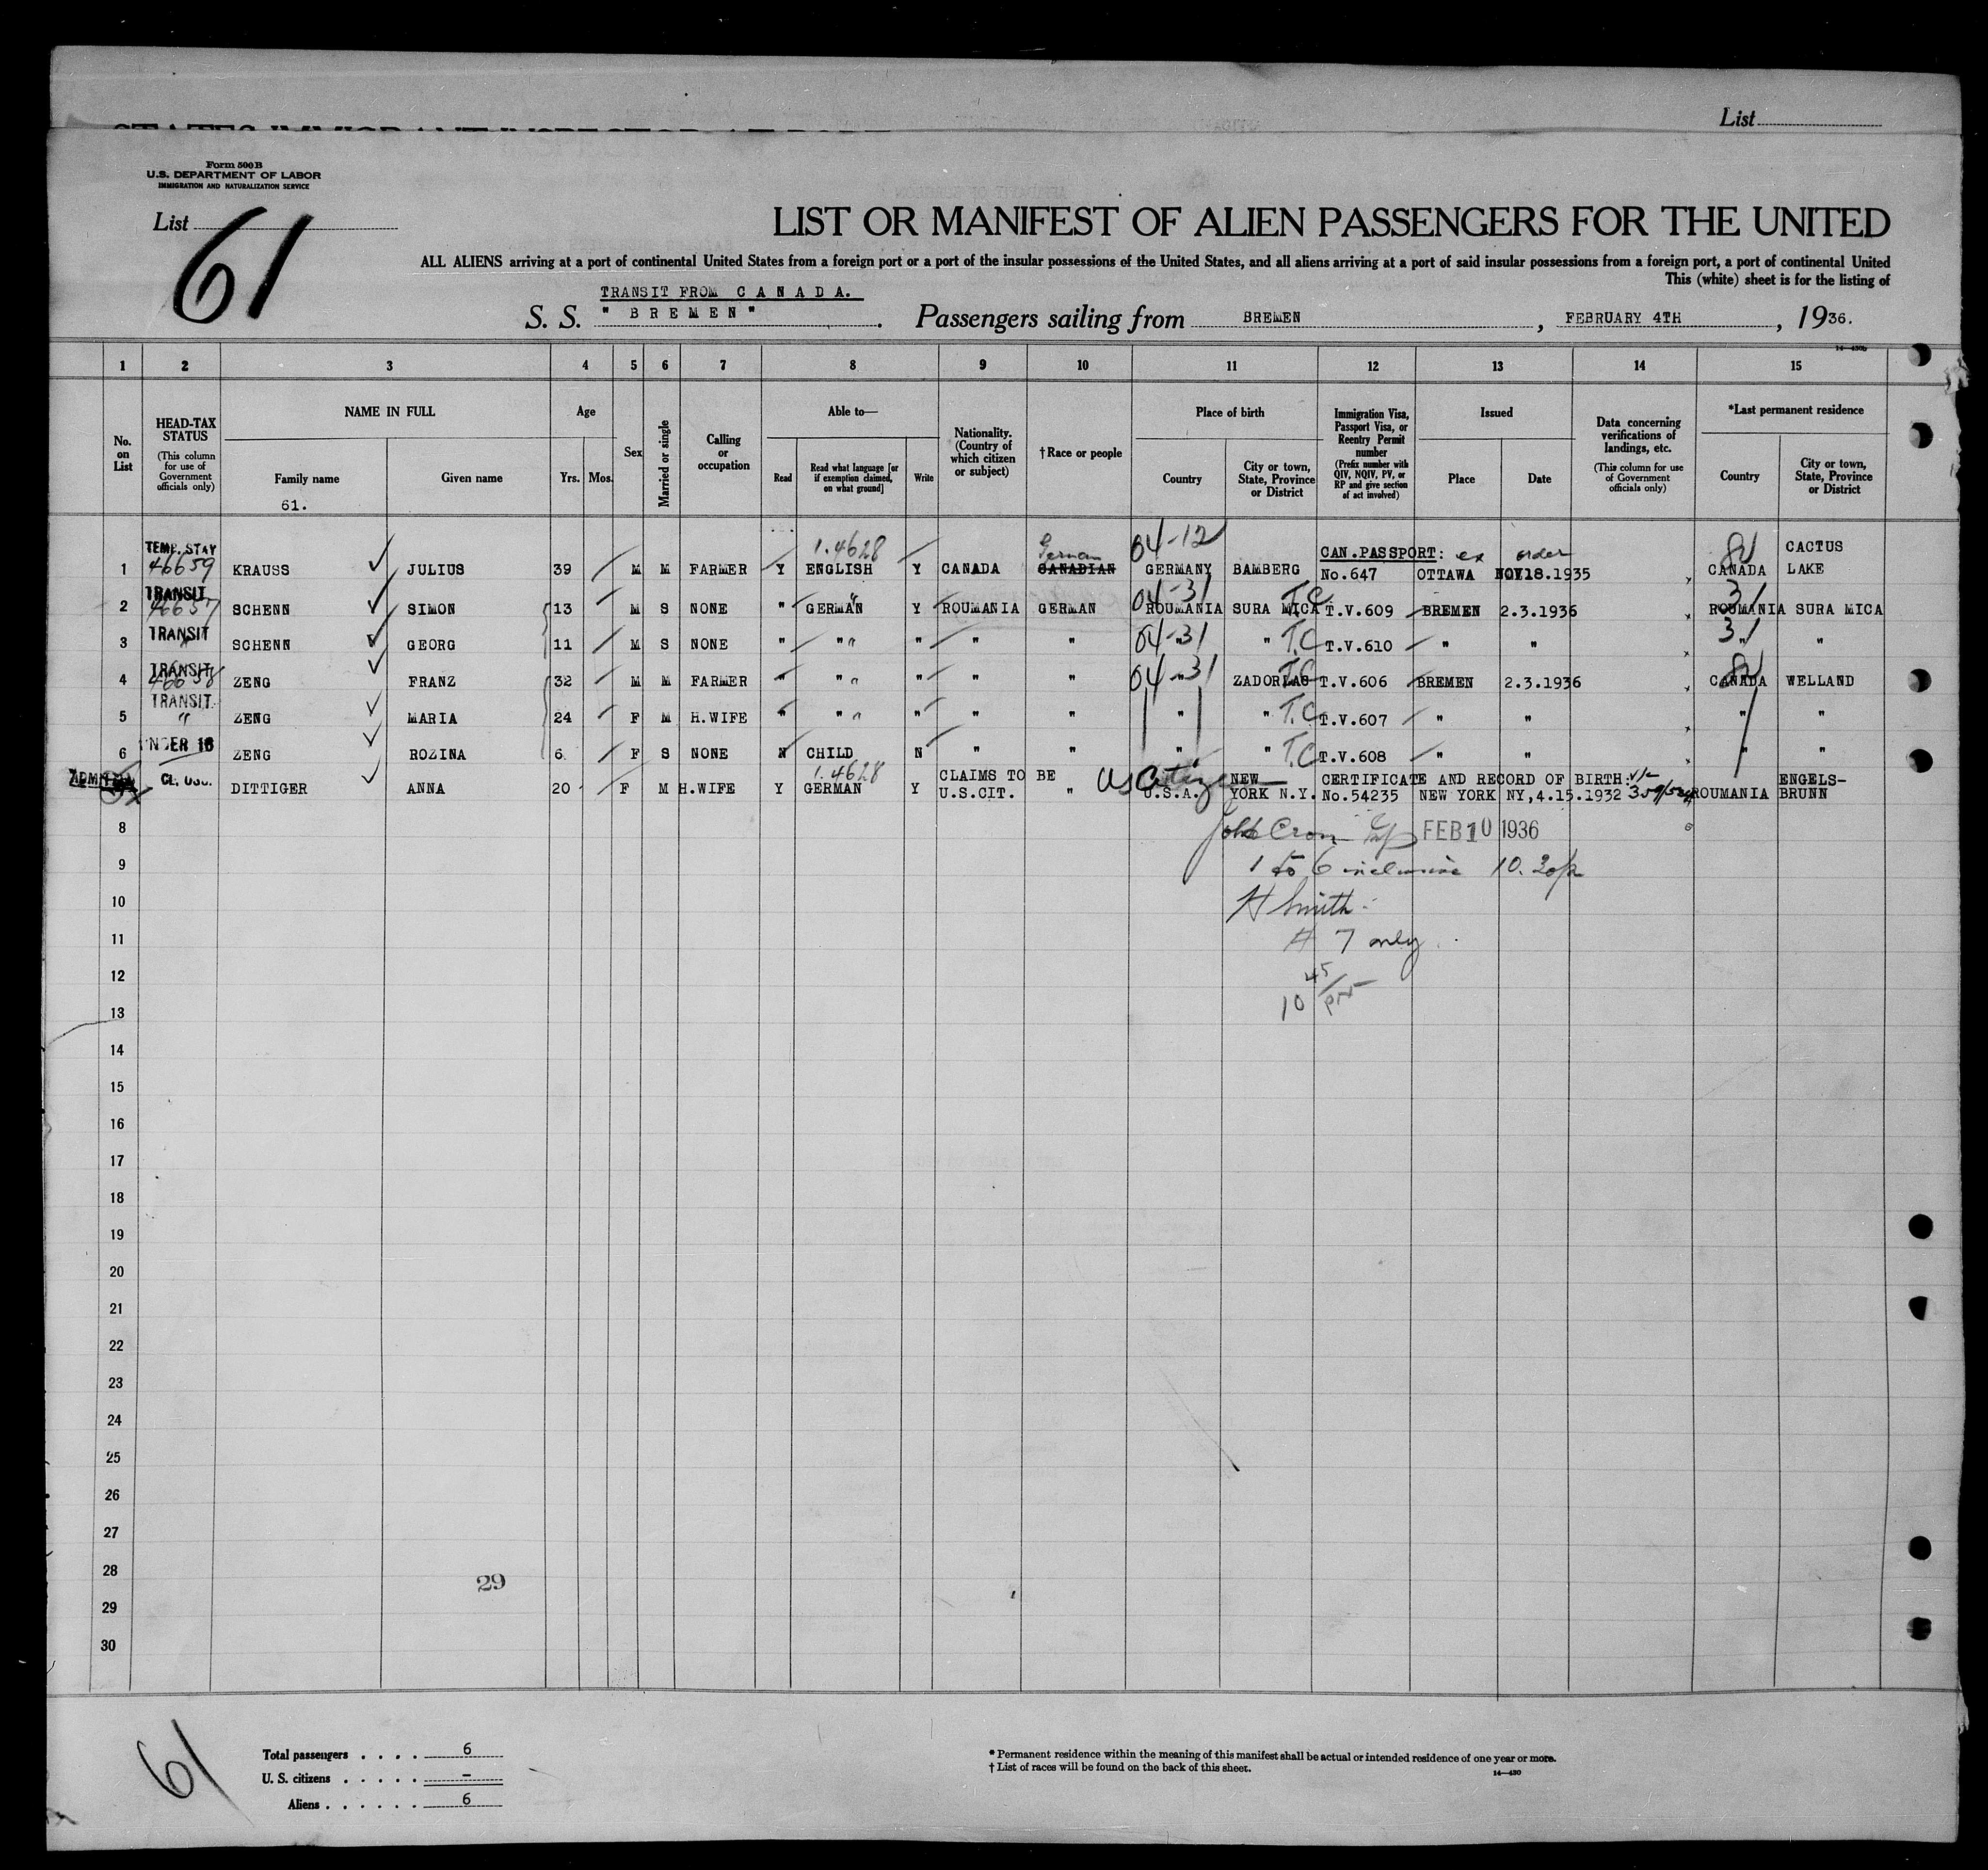 List
Form 500 B
U.S. DEPARTMENT OF LABOR
IMMIGRATION AND NATURALIZATION SERVICE
List 61
LIST OR MANIFEST OF ALIEN PASSENGERS FOR THE UNITED
ALL ALIENS arriving at a port of continental United States from a foreign port or a port of the insular possessions of the United States, and all aliens arriving at a port of said insular possessions from a foreign port, a port of continental United
This (white) sheet is for the listing of
TRANSIT FROM C A N A D A.
S. S. " B R E M E N " . Passengers sailing from BREMEN , FEBRUARY 4TH , 1936.
14—430b
1 2 3 4 5 6 7 8 9 10 11 12 13 14 15
No. on List
HEAD-TAX STATUS
(This column for use of Government officials only)
NAME IN FULL
Family name
Given name
61.
Age
Yrs. Mos.
Sex
Married or single
Calling or occupation
Able to—
Read
Read what language [or if exemption claimed, on what ground]
Write
Nationality. (Country of which citizen or subject)
†Race or people
Place of birth
Country
City or town, State, Province or District
Immigration Visa, Passport Visa, or Reentry Permit number
(Prefix number with QIV, NQIV, PV, or RP and give section of act involved)
Issued
Place
Date
Data concerning verifications of landings, etc.
(This column for use of Government officials only)
*Last permanent residence
Country
City or town, State, Province or District
TEMP. STAY 1.4628 German 04-12 CAN.PASSPORT: ex order CACTUS
1 46659 KRAUSS JULIUS 39 M M FARMER Y ENGLISH Y CANADA CANADIAN GERMANY BAMBERG No.647 OTTAWA NOV.18.1935 CANADA LAKE
TRANSIT 04-31 T.C 31
2 46657 SCHENN SIMON 13 M S NONE " GERMAN Y ROUMANIA GERMAN ROUMANIA SURA MICA T.V.609 BREMEN 2.3.1936 ROUMANIA SURA MICA
TRANSIT 04-31 T.C 31
3 " SCHENN GEORG 11 M S NONE " " " " " " " " T.V.610 " " " "
TRANSIT 04-31 T.C
4 46658 ZENG FRANZ 32 M M FARMER " " " " " " " ZADORLAS T.V.606 BREMEN 2.3.1936 CANADA WELLAND
TRANSIT T.C
5 " ZENG MARIA 24 F M H.WIFE " " " " " " " " T.V.607 " " " "
6 UNDER 16 ZENG ROZINA 6 F S NONE N CHILD N " " " " T.C T.V.608 " " " "
ADMITTED 1.4628 CLAIMS TO BE US Citizen NEW CERTIFICATE AND RECORD OF BIRTH: ENGELS-
DITTIGER ANNA 20 F M H.WIFE Y GERMAN Y U.S.CIT. " U.S.A. YORK N.Y. No.54235 NEW YORK NY,4.15.1932 ROUMANIA BRUNN
8 FEB 10 1936
9 1 to 6 inclusive
10 H Smith
11 # 7 only
12
13 10 45/pm
14
15
16
17
18
19
20
21
22
23
24
25
26
27
28
29
29
30
61
Total passengers . . . . 6
U. S. citizens . . . . . –
Aliens . . . . . . 6
* Permanent residence within the meaning of this manifest shall be actual or intended residence of one year or more.
† List of races will be found on the back of this sheet.
14—430